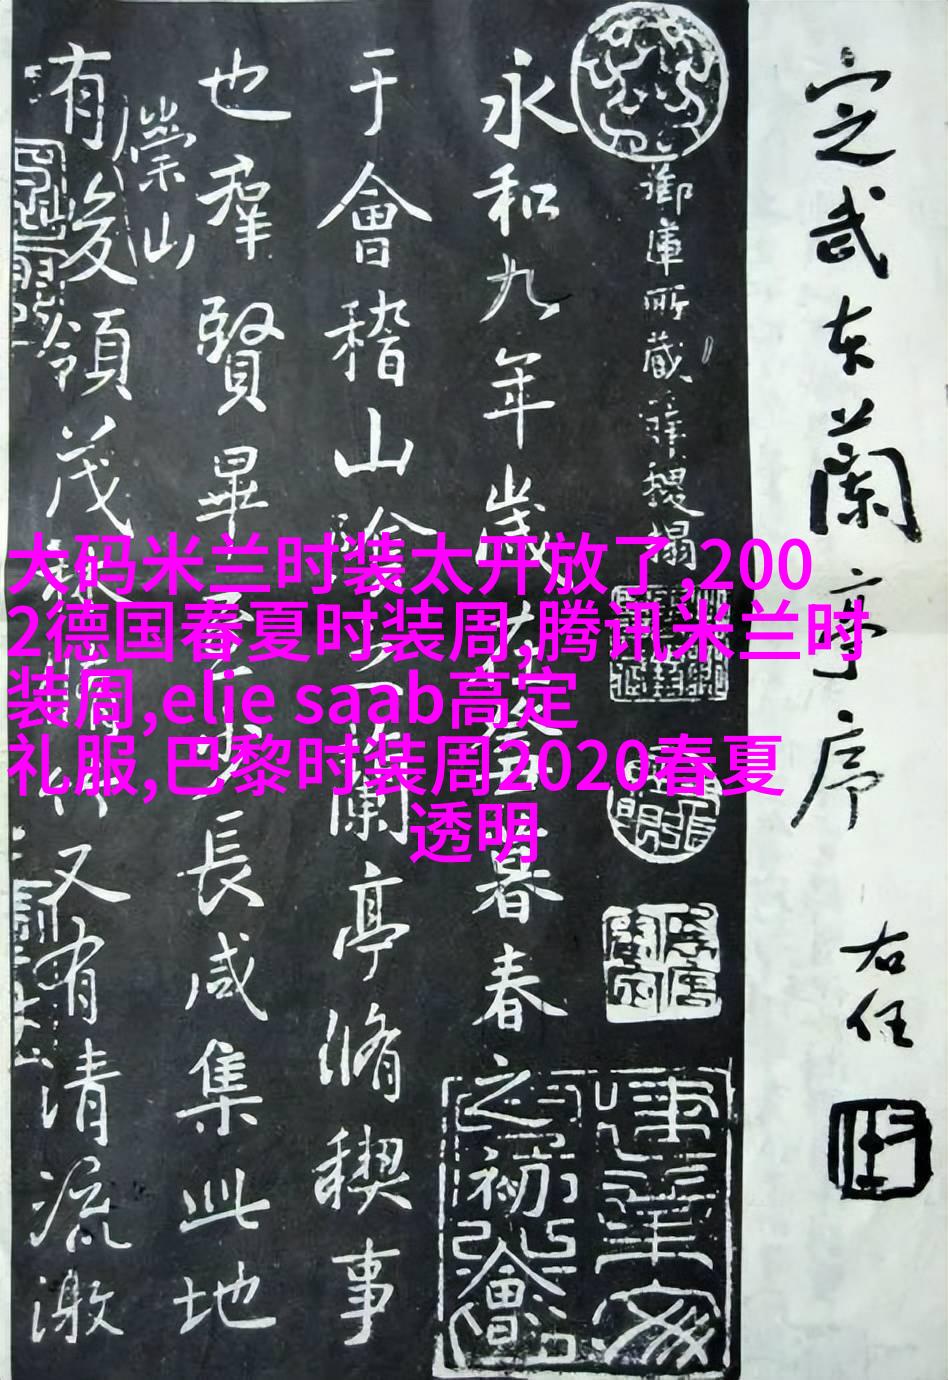 定武本蘭亭序
右任
御庫所藏薛稷搨
永和九年歲在癸丑暮春之初會
于會稽山陰之蘭亭脩稧事
也羣賢畢至少長咸集此地
崇山
有峻領茂林脩竹又有清流激
大码米兰时装太开放了,200
2德国春夏时装周,腾讯米兰时
装周,elie saab高定
礼服,巴黎时装周2020春夏
透明